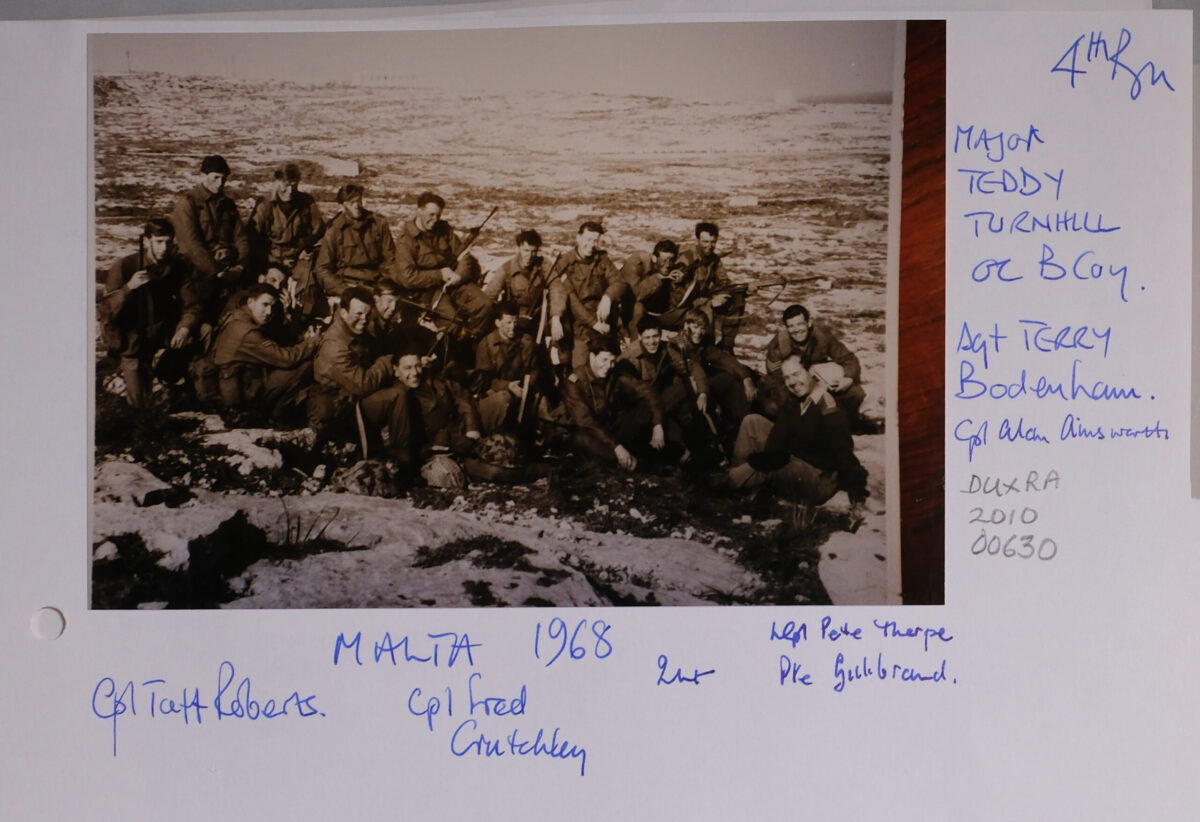 4th Bn
MAJOR
TEDDY
TURNHILL
OC B Coy.
Sgt TERRY
Bodenham.
Cpl Alan Ainsworth
DUXRA
2010
00630
MALTA 1968
LCpl Pete Thorpe
Pte Gillibrand.
Cpl Taff Roberts.
Cpl Fred
Crutchley